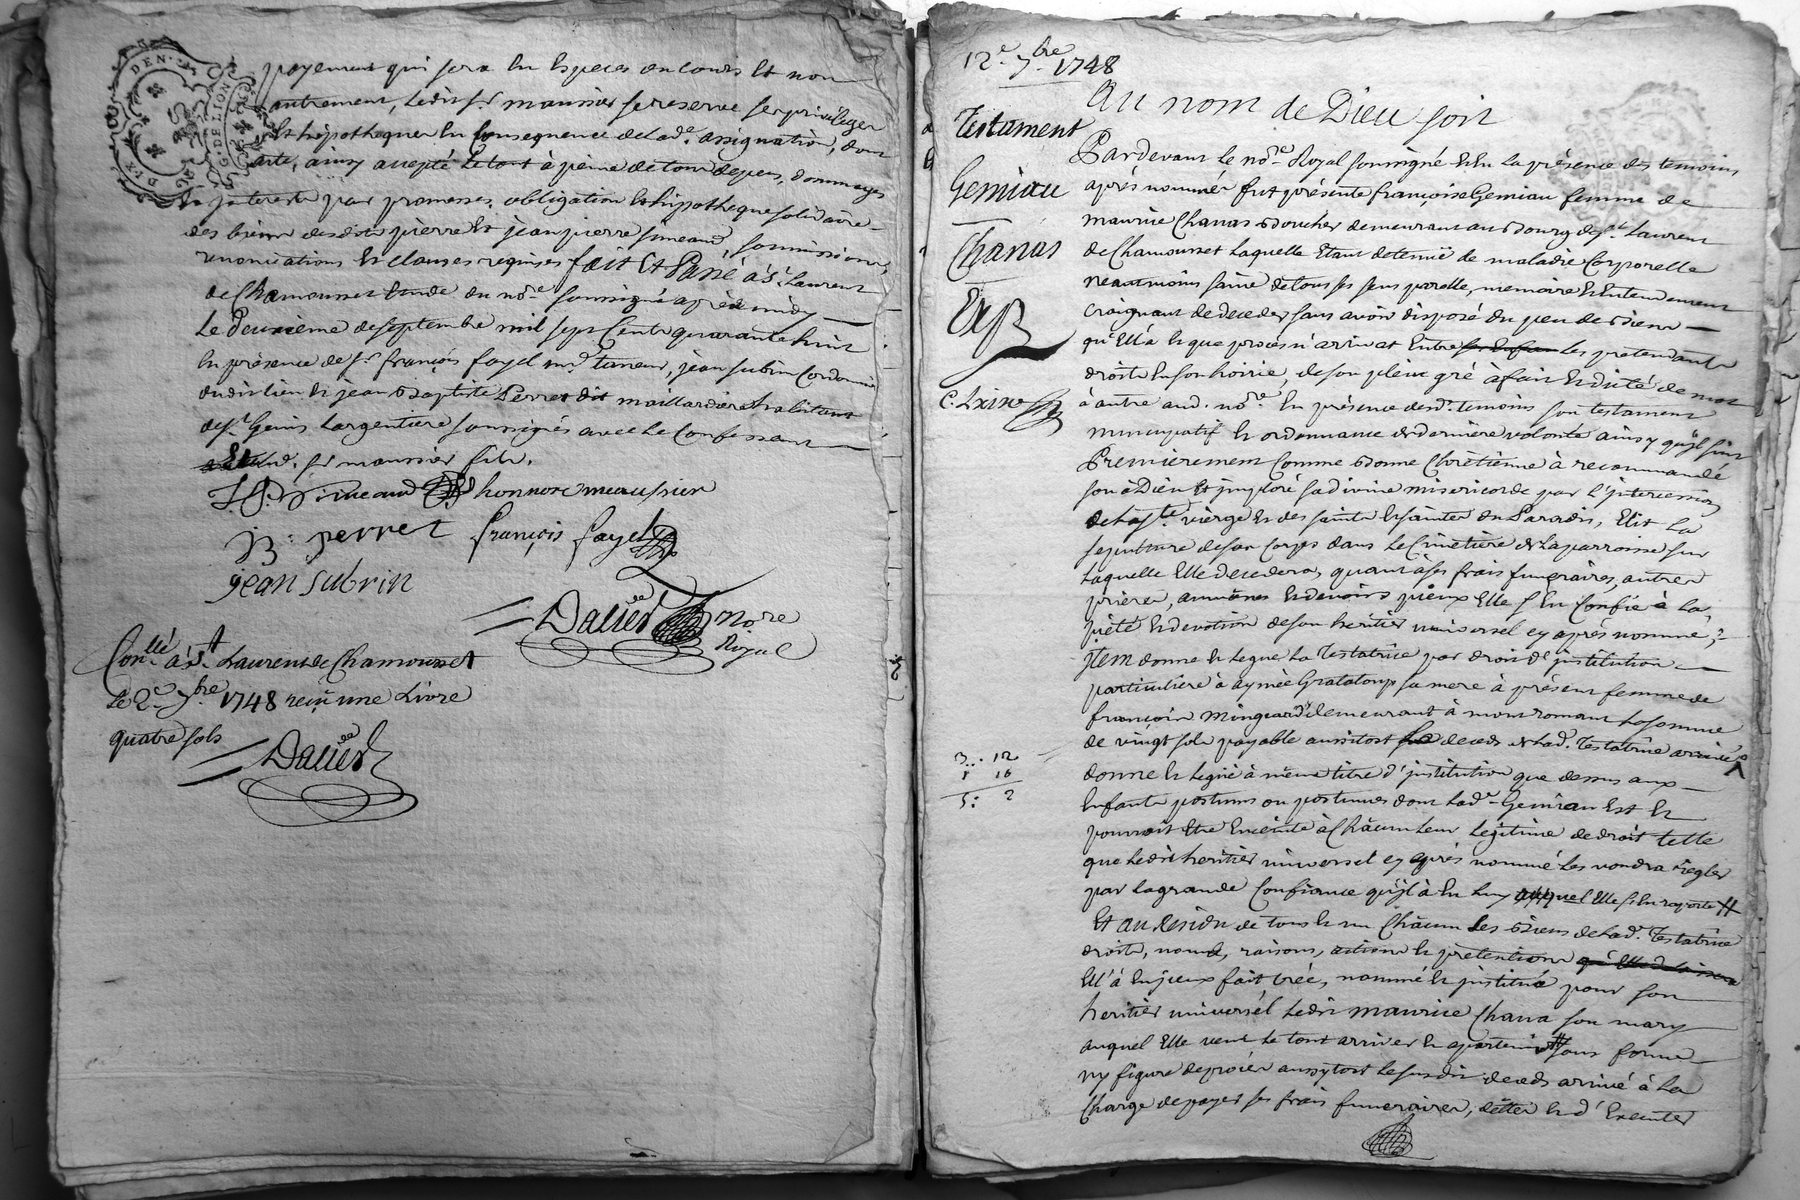 DEN.
G. DE LION
DIX
payement qui sera en especes en cours et non
autrement, ledit sr. maussier se reserve ses privileges
et hipotheques en consequence de lad. assignation, dont
acte, ainsy accepté le tout à peine de tous depens, dommages
interests par promesses, obligation et hipotheque solidaire
des biens desdits pierre et jean pierre simeand, soumissions,
renonciations et clauses requises fait et Passé à St. Laurent
de Chamousset Etude du nore. soussigné après midy
Le deuxieme de septembre mil sept Cents quarante huit
en présence de sr. françois fayel md. taneur, jean subrin Cordonnier
dudit lieu et jean Baptiste Perret dit maillardiere habitant
de st. Genis Largentiere soussignés avec le Confessant
et led. sr. maussier fils.
J. P. simeand honnore meaussier
JB: perret françois fayel
jean subrin
Dalier nore
Royal
Conllé à St. Laurent de Chamousset
Le 2e. 7bre. 1748 reçu une Livre
quatre sols
Dalier
12e. 7bre 1748
Au nom de Dieu soit
Testament
Gemiau
Chanas
Exp
Pardevant le nore. Royal soussigné et en la présence des temoins
après nommés fut présente françoise Gemiau femme de
maurice Chanas Boucher demeurant au Bourg de st. Laurent
de Chamousset laquelle Etant detenüe de maladie Corporelle
neantmoins saine de tous ses sens parolle, memoire et Entendement
craignant de deceder sans avoir disposé du peu de Biens
qu'Ell'à et que procès n'arrivat entre les pretendants
droits en son hoirie, de son plein gré à fait et dicté de mot
à autre aud. nore. en présence desd. temoins son testament
nuncupatif et ordonnance de derniere volonté ainsy qu'il suit
Premierement Comme Bonne Chrêtienne à recommandé
son à Dieu et imploré sa divine misericorde par l'jntercession
de la ste. vierge et des saints et saintes du Paradis, Elit la
sepulture de son Corps dans le Cimetiere de la parroisse sur
laquelle Elle decedera, quant à ses frais funeraires, autres
prieres, aumônes et devoirs pieux Elle s'en Confie à la
pieté et devotion de son heritier universel cy après nommé,
jtem donne et legue la Testatrice par droit d'institution
particuliere à aymée Grataloup sa mere à présent femme de
françois mingeard demeurant à montromant la somme
de vingt sols payable aussitost le deceds de lad. Testatrice arrivé
3.. 12
1 10
5: 2
donne et legüe à même titre d'jnstitution que dessus aux
Enfants postumes ou postumes dont lad. Gemiau est et
pourroit Etre Enceinte à Châcun leur legitime de droit telle
que ledit heritier universel cy après nommé les voudra regler
par la grande Confiance qu'il à en luy auquel Elle s'en raporte
Et au Residu de tous et un Châcun les Biens de lad. Testatrice
droits, noms, raisons, actions et pretentions
Ell'à Enjceux fait créé, nommé et jnstitué pour son
heritier universel ledit maurice Chana son mary
auquel Elle veut le tout arriver et apartenir sans forme
ny figure de procès aussytost le susdit deceds arrivé à la
Charge de payer ses frais funeraires, dettes et d'Executer